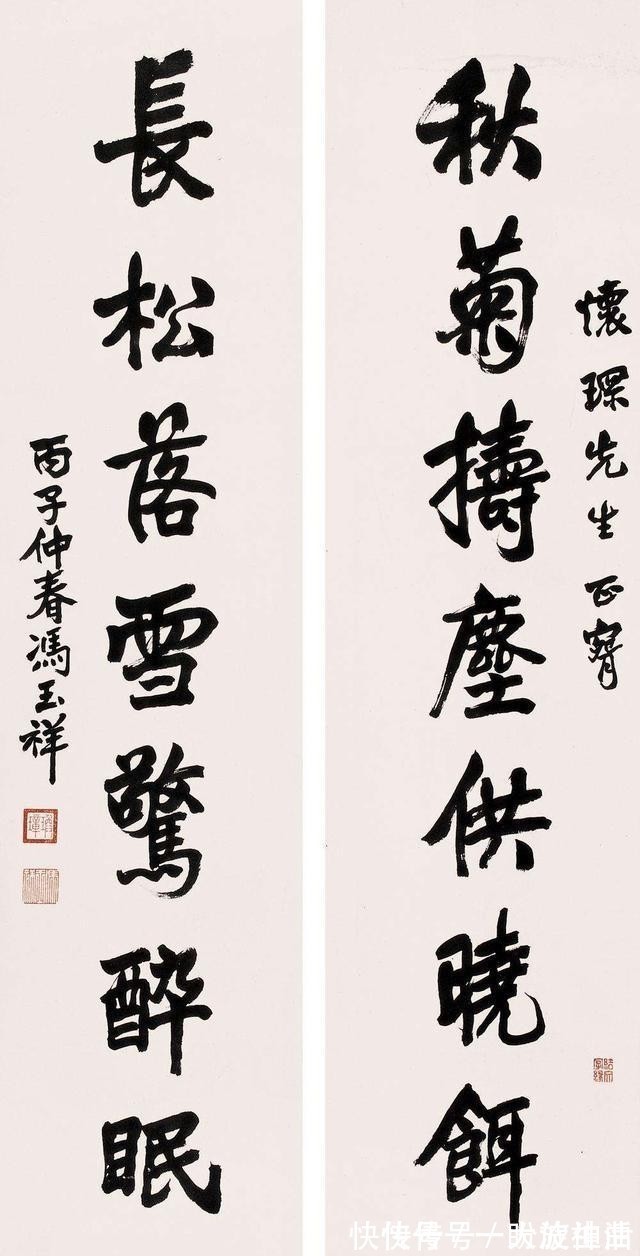 懷琛先生正窵
秋菊擣塵供曉餌
長松落雪驚醉眠
丙子仲春馮玉祥